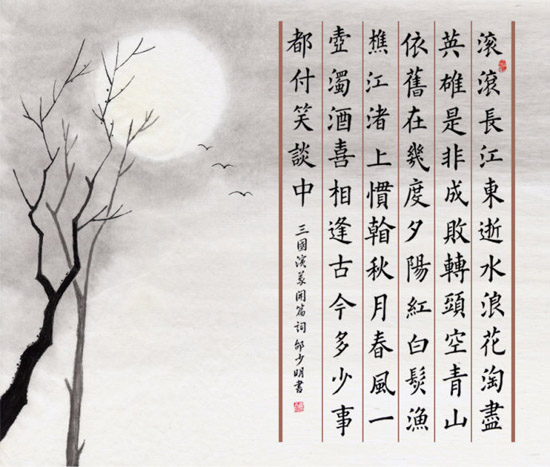 滾滾長江東逝水浪花淘盡
英雄是非成敗轉頭空青山
依舊在幾度夕陽紅白髮漁
樵江渚上慣看秋月春風一
壺濁酒喜相逢古今多少事
都付笑談中
三國演義開篇詞 少明書